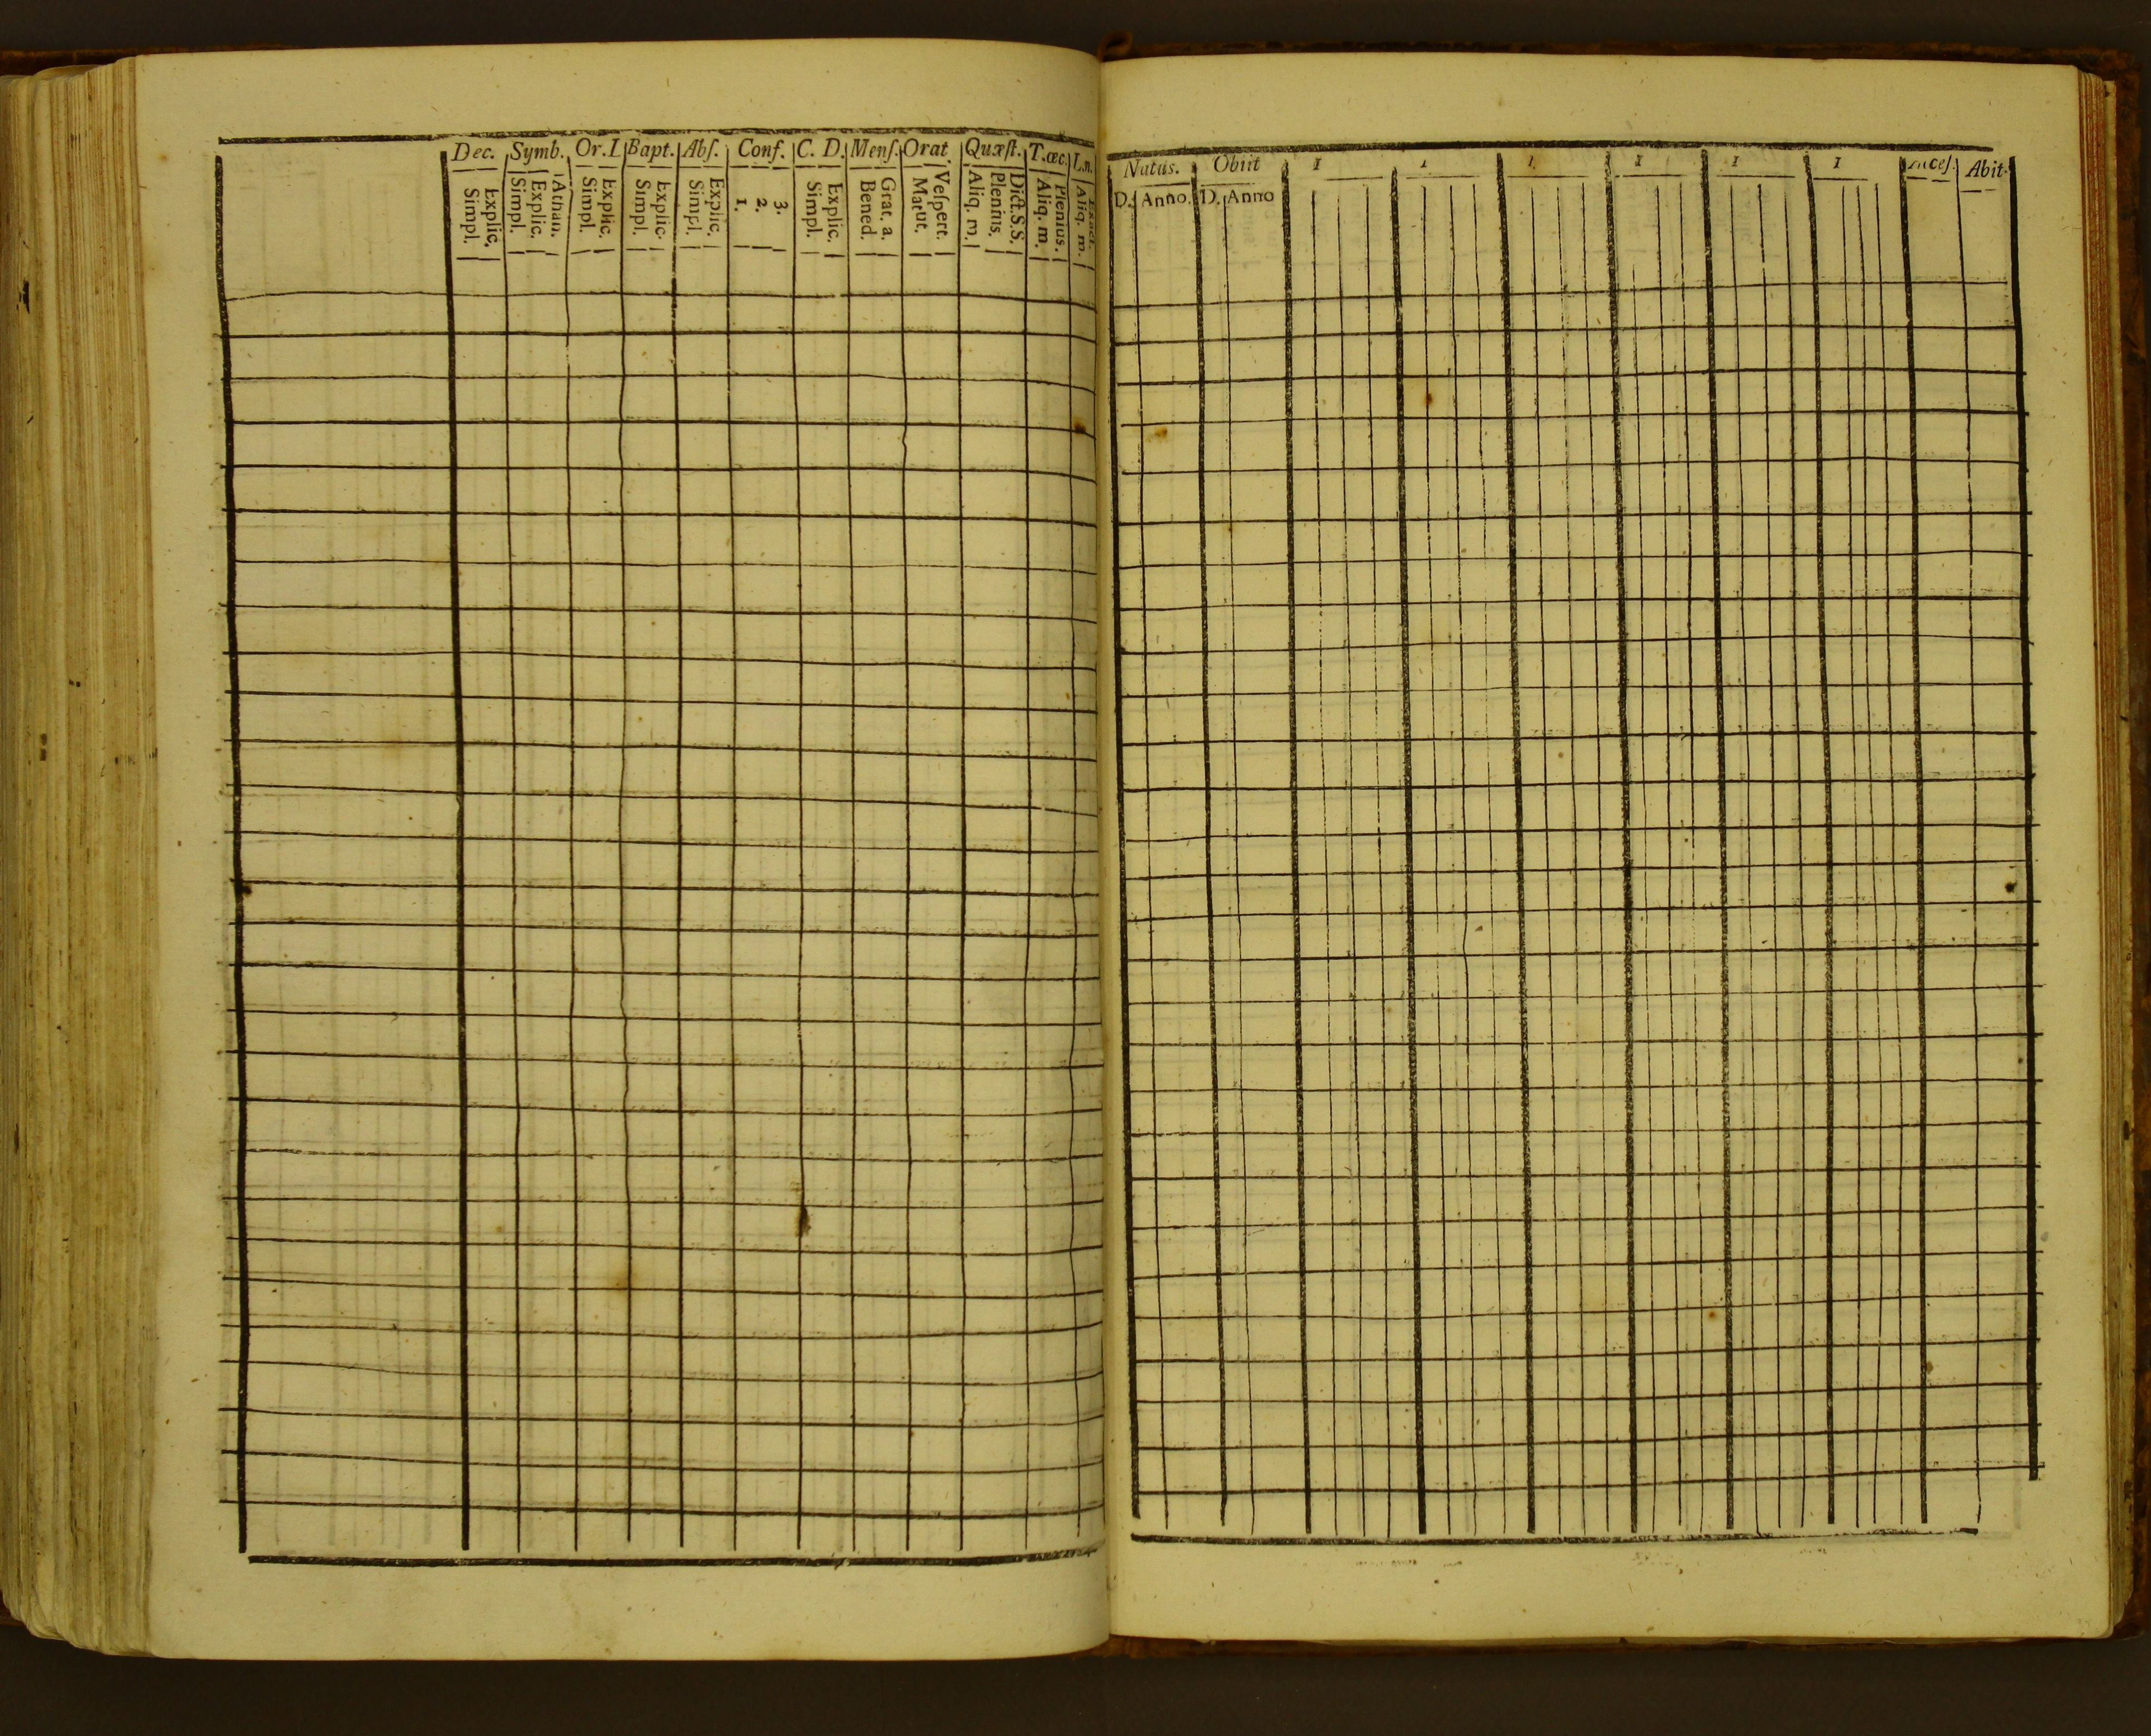 Dec. Symb. Or. I Bapt. Abſ. Conf. C. D. Menſ. Orat. Quæſt. T. œc. L.n.
Explic.
Simpl.
Athan.
Explic.
Simpl.
Explic.
Simpl.
Explic.
Simpl.
Explic.
Simpl.
3.
2.
1.
Explic.
Simpl.
Grat. a.
Bened.
Veſpert.
Matut.
Dict.S.S.
Plenius.
Aliq. m.
Plenius.
Aliq. m.
Exact.
Aliq. m.
Natus. Obiit 1 1 1 1 1 1 Abit.
D. Anno. D. Anno